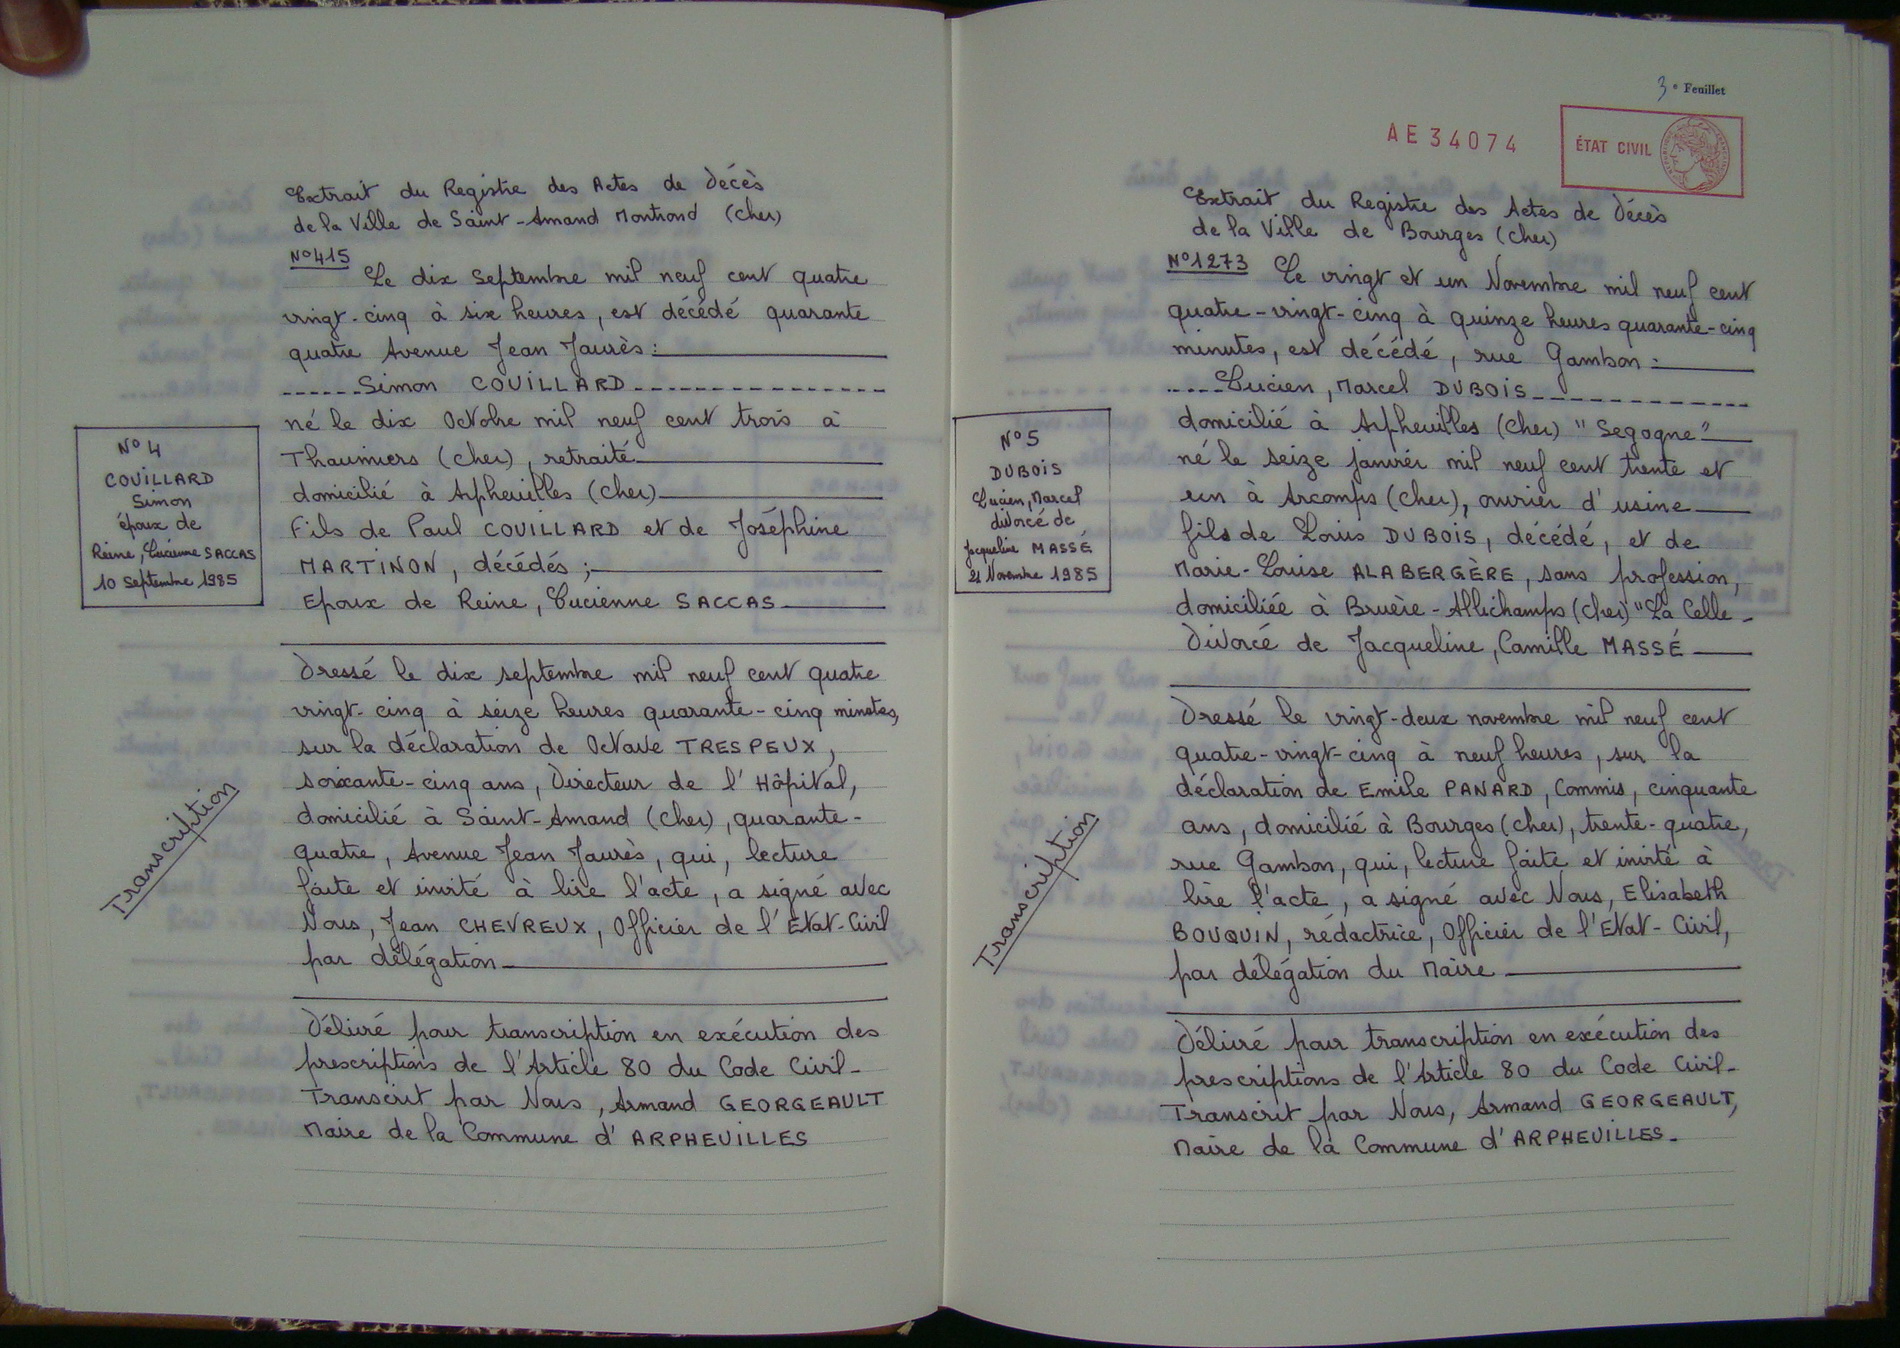 Extrait du Registre des Actes de Décès
de la Ville de Saint-Amand Montrond (Cher)
N°415
Le dix Septembre mil neuf cent quatre
vingt-cinq à six heures, est décédé quarante
quatre Avenue Jean Jaurès :
Simon COUILLARD
né le dix Octobre mil neuf cent trois à
Thaumiers (Cher), retraité
domicilié à Arpheuilles (Cher)
Fils de Paul COUILLARD et de Joséphine
MARTINON, décédés ;
Epoux de Reine, Lucienne SACCAS
N° 4
COUILLARD
Simon
époux de
Reine, Lucienne SACCAS
10 Septembre 1985
Dressé le dix septembre mil neuf cent quatre
vingt-cinq à seize heures quarante-cinq minutes,
sur la déclaration de Octave TRESPEUX,
soixante-cinq ans, Directeur de l'Hôpital,
domicilié à Saint-Amand (Cher), quarante-
quatre, Avenue Jean Jaurès, qui, lecture
faite et invité à lire l'acte, a signé avec
Nous, Jean CHEVREUX, Officier de l'Etat-Civil
par délégation
Transcription
Délivré pour transcription en exécution des
prescriptions de l'Article 80 du Code Civil-
Transcrit par Nous, Armand GEORGEAULT
Maire de la Commune d'ARPHEUILLES
3e Feuillet
AE34074
ÉTAT CIVIL
Extrait du Registre des Actes de Décès
de la Ville de Bourges (Cher)
N°1273 Le vingt et un Novembre mil neuf cent
quatre-vingt-cinq à quinze heures quarante-cinq
minutes, est décédé, rue Gambon :
Lucien, Marcel DUBOIS
domicilié à Arpheuilles (Cher) "Segogne"
né le seize janvier mil neuf cent trente et
un à Arcomps (Cher), ouvrier d'usine
fils de Louis DUBOIS, décédé, et de
Marie-Louise ALABERGÈRE, sans profession,
domiciliée à Bruère-Allichamps (Cher) "La Celle-
Divorcé de Jacqueline, Camille MASSÉ
N°5
DUBOIS
Lucien, Marcel
divorcé de
Jacqueline MASSÉ
21 Novembre 1985
Dressé le vingt-deux novembre mil neuf cent
quatre-vingt-cinq à neuf heures, sur la
déclaration de Emile PANARD, Commis, cinquante
ans, domicilié à Bourges (Cher), trente-quatre,
rue Gambon, qui, lecture faite et invité à
lire l'acte, a signé avec Nous, Elisabeth
BOUQUIN, rédactrice, Officier de l'Etat-Civil,
par délégation du Maire
Transcription
Délivré pour transcription en exécution des
prescriptions de l'Article 80 du Code Civil-
Transcrit par Nous, Armand GEORGEAULT,
Maire de la Commune d'ARPHEUILLES-